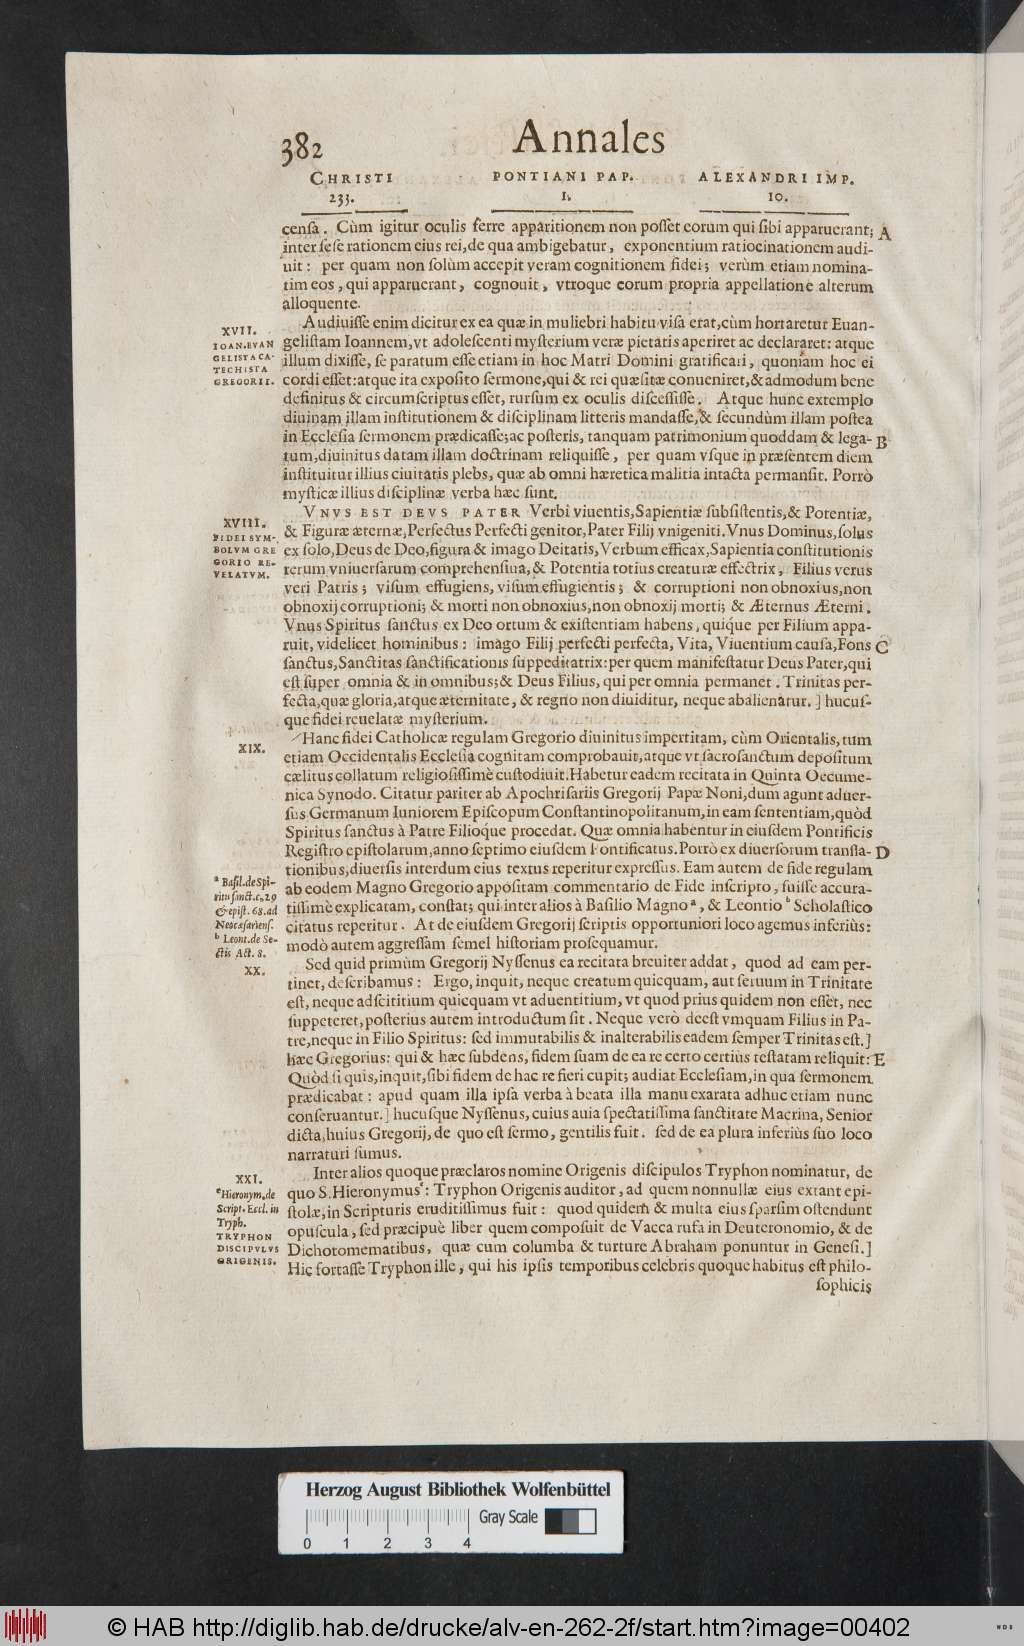 382
Annales
CHRISTI PONTIANI PAP. ALEXANDRI IMP.
233. I. 10.
censa. Cùm igitur oculis ferre apparitionem non posset eorum qui sibi apparuerant; A
inter sese rationem eius rei, de qua ambigebatur, exponentium ratiocinationem audi-
uit: per quam non solùm accepit veram cognitionem fidei; verùm etiam nomina-
tim eos, qui apparuerant, cognouit, vtroque eorum propria appellatione alterum
alloquente.
XVII.
IOAN. EVAN
GELISTA CA-
TECHISTA
GREGORII.
Audiuisse enim dicitur ex ea quæ in muliebri habitu visa erat, cùm hortaretur Euan-
gelistam Ioannem, vt adolescenti mysterium veræ pietatis aperiret ac declararet: atque
illum dixisse, se paratum esse etiam in hoc Matri Domini gratificari, quoniam hoc ei
cordi esset: atque ita exposito sermone, qui & rei quæsitæ conueniret, & admodum bene
definitus & circumscriptus esset, rursum ex oculis discessisse. Atque hunc extemplo
diuinam illam institutionem & disciplinam litteris mandasse, & secundùm illam postea
in Ecclesia sermonem prædicasse; ac posteris, tanquam patrimonium quoddam & lega- B
tum, diuinitus datam illam doctrinam reliquisse, per quam vsque in præsentem diem
instituitur illius ciuitatis plebs, quæ ab omni hæretica malitia intacta permansit. Porrò
mysticæ illius disciplinæ verba hæc sunt.
XVIII.
FIDEI SYM-
BOLVM GRE
GORIO RE-
VELATVM.
VNVS EST DEVS PATER Verbi viuentis, Sapientiæ subsistentis, & Potentiæ,
& Figuræ æternæ, Perfectus Perfecti genitor, Pater Filij vnigeniti. Vnus Dominus, solus
ex solo, Deus de Deo, figura & imago Deitatis, Verbum efficax, Sapientia constitutionis
rerum vniuersarum comprehensiua, & Potentia totius creaturæ effectrix, Filius verus
veri Patris; visum effugiens, visum effugientis; & corruptioni non obnoxius, non
obnoxij corruptioni; & morti non obnoxius, non obnoxij morti; & Æternus Æterni.
Vnus Spiritus sanctus ex Deo ortum & existentiam habens, quiq́ue per Filium appa-
ruit, videlicet hominibus: imago Filij perfecti perfecta, Vita, Viuentium causa, Fons C
sanctus, Sanctitas sanctificationis suppeditatrix: per quem manifestatur Deus Pater, qui
est super omnia & in omnibus; & Deus Filius, qui per omnia permanet. Trinitas per-
fecta, quæ gloria, atque æternitate, & regno non diuiditur, neque abalienatur.] hucus-
que fidei reuelatæ mysterium.
XIX.
Hanc fidei Catholicæ regulam Gregorio diuinitus impertitam, cùm Orientalis, tum
etiam Occidentalis Ecclesia cognitam comprobauit, atque vt sacrosanctum depositum
cælitus collatum religiosissimè custodiuit. Habetur eadem recitata in Quinta Oecume-
nica Synodo. Citatur pariter ab Apochrisariis Gregorij Papæ Noni, dum agunt aduer-
sus Germanum Iuniorem Episcopum Constantinopolitanum, in eam sententiam, quòd
Spiritus sanctus à Patre Filioq́ue procedat. Quæ omnia habentur in eiusdem Pontificis
Registro epistolarum, anno septimo eiusdem Pontificatus. Porrò ex diuersorum transla- D
tionibus, diuersis interdum eius textus reperitur expressus. Eam autem de fide regulam
ab eodem Magno Gregorio appositam commentario de Fide inscripto, fuisse accura-
tissimè explicatam, constat; qui inter alios à Basilio Magno a, & Leontio b Scholastico
citatus reperitur. At de eiusdem Gregorij scriptis opportuniori loco agemus inferiùs:
modò autem aggressam semel historiam prosequamur.
a Basil. de Spi-
ritu sanct. c. 29
& epist. 68. ad
Neocæsariens.
b Leont. de Se-
ctis Act. 8.
XX.
Sed quid primùm Gregorij Nyssenus ea recitata breuiter addat, quod ad eam per-
tinet, describamus: Ergo, inquit, neque creatum quicquam, aut seruum in Trinitate
est, neque adscititium quicquam vt aduentitium, vt quod prius quidem non esset, nec
suppeteret, posterius autem introductum sit. Neque verò deest vmquam Filius in Pa-
tre, neque in Filio Spiritus: sed immutabilis & inalterabilis eadem semper Trinitas est.]
hæc Gregorius: qui & hæc subdens, fidem suam de ea re certo certiùs testatam reliquit: E
Quòd si quis, inquit, sibi fidem de hac re fieri cupit; audiat Ecclesiam, in qua sermonem
prædicabat: apud quam illa ipsa verba à beata illa manu exarata adhuc etiam nunc
conseruantur.] hucusque Nyssenus, cuius auia spectatissima sanctitate Macrina, Senior
dicta, huius Gregorij, de quo est sermo, gentilis fuit. sed de ea plura inferiùs suo loco
narraturi sumus.
XXI.
c Hieronym. de
Script. Eccl. in
Tryph.
TRYPHON
DISCIPVLVS
ORIGENIS.
Inter alios quoque præclaros nomine Origenis discipulos Tryphon nominatur, de
quo S. Hieronymus c: Tryphon Origenis auditor, ad quem nonnullæ eius extant epi-
stolæ, in Scripturis eruditissimus fuit: quod quidem & multa eius sparsim ostendunt
opuscula, sed præcipuè liber quem composuit de Vacca rufa in Deuteronomio, & de
Dichotomematibus, quæ cum columba & turture Abraham ponuntur in Genesi.]
Hic fortasse Tryphon ille, qui his ipsis temporibus celebris quoque habitus est philo-
sophicis
Herzog August Bibliothek Wolfenbüttel
Gray Scale
0 1 2 3 4
© HAB http://diglib.hab.de/drucke/alv-en-262-2f/start.htm?image=00402